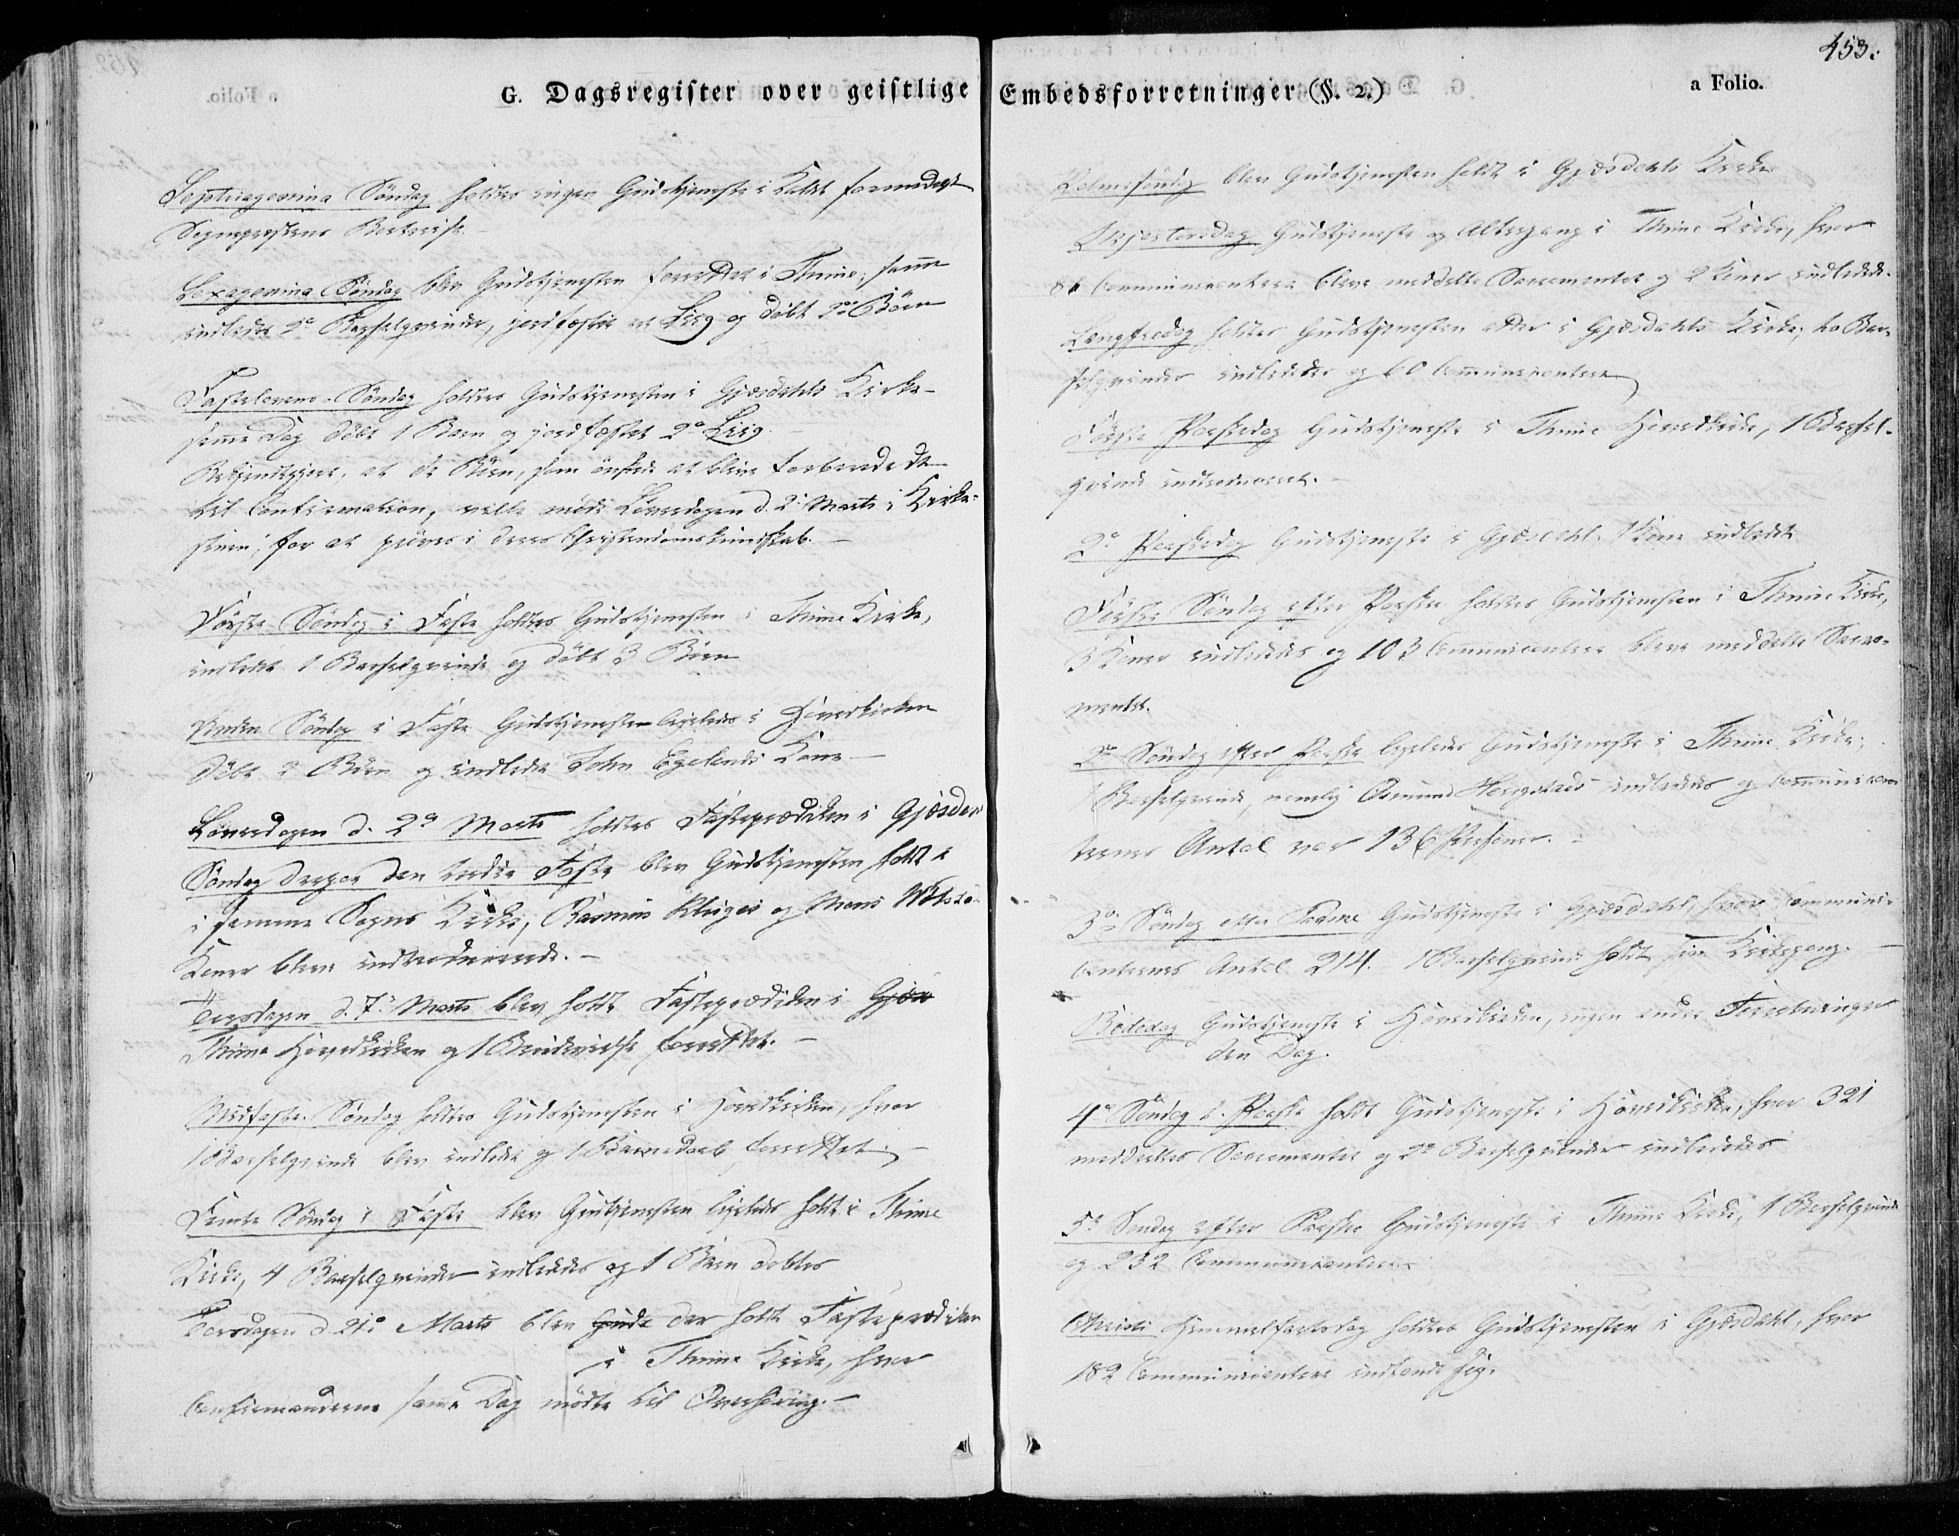 453.
G. Dagsregister over geistlige Embedsforretninger (§. 2.)
a Folio.
Septuagesima Søndag holdtes ingen Gudstjeneste i Kaldet formedelst
Sognepræstens
Sexagesima Søndag blev Gudstjenesten forrettet i Thime; samme
indledet 2de Barselqvinder, jordfæstet et Liig og døbt 2de Børn
Fastelavns-Søndag holdtes Gudstjenesten i Gjæsdahls Kirke
samme Dag døbt 1 Barn og jordfæstet 2de Liig.
Bekjendtgjort, at de Børn, som ønskede at blive forberedede
til Confirmation, ville møde Løverdagen d. 2den Marts i Kirke-
for at prøves i deres Christendomskundskab. —
Første Søndag i Faste holdtes Gudstjenesten i Thime Kirke,
indledet 1 Barselqvinde og døbt 3 Børn
Anden Søndag i Faste Gudstjenesten ligeledes i Hovedkirken
døbt 2 Børn og indledet John Egelands Kone —
Løverdagen d. 2den Marts holdtes Fasteprædiken i Gjæsdal
Søndag derpaa den tredie Faste blev Gudstjenesten holdt
i samme Sogns Kirke; Rasmus og Mons
Koner bleve introducerede. —
Torsdagen d. 7de Marts blev holdt Fasteprædiken i Gjæs
Thime Hovedkirken og 1 Brudevielse forrettet. —
Midfaste Søndag holdtes Gudstjenesten i Hovedkirken, hvor
1 Barselqvinde blev indledet og 1 Barnedaab forrettet. —
Femte Søndag i Faste blev Gudtjenesten ligeledes holdt i Thime
Kirke, 4 Barselqvinder indlededes og 1 Barn døbtes
Torsdagen d. 21de Marts blev Guds der holdt Fasteprædiken
i Thime Kirke, hvor
Confirmanderne samme Dag mødte til Overhøring. —
Palmesøndag blev Gudstjenesten holdt i Gjæsdahls Kirke
Skjærtorsdag Gudstjeneste og Altergang i Thime Kirke, hvor
86 Communicantere bleve meddelte Sacramentet og 2 Koner indledede.
Langfredag holdtes Gudstjenesten atter i Gjæsdahls Kirke; to Bar-
selqvinder indlededes og 60 Communicantere
Første Paaskedag Gudstjeneste i Thime Hovedkirke, 1 Barsel-
qvinde introduceret. —
2den Paaskedag Gudstjeneste i Gjæsdahl. 1 Kone indledet
Første Søndag efter Paaske holdtes Gudstjenesten i Thime Kirke,
3 Koner indlededes og 103 Communicantere bleve meddelte Sacra-
mentet.
2den Søndag efter Paaske ligeledes Gudstjeneste i Thime Kirke;
1 Barselqvinde, nemlig Osmund Herigstads indlededes og Communican-
ternes Antal var 136 Personer. —
3die Søndag efter Paaske Gudstjeneste i Gjæsdahl, hvor Communi-
canternes Antal 214. 1 Barselqvinde holdt sin Kirkegang. —
Bededag Gudstjeneste i Hovedkirken, ingen anden Forretninger
den Dag.
4de Søndag e. Paaske holdt Gudstjeneste i Hovedkirken, hvor 321
meddeltes Sacramentet og 2de Barselqvinder indlededes
5te Søndag efter Paaske Gudstjeneste i Thime Kirke, 1 Barselqvinde
og 232 Communicantere
Christi Himmelfartsdag holdtes Gudstjenesten i Gjæsdahl, hvor
182 Communicantere indfandt sig.